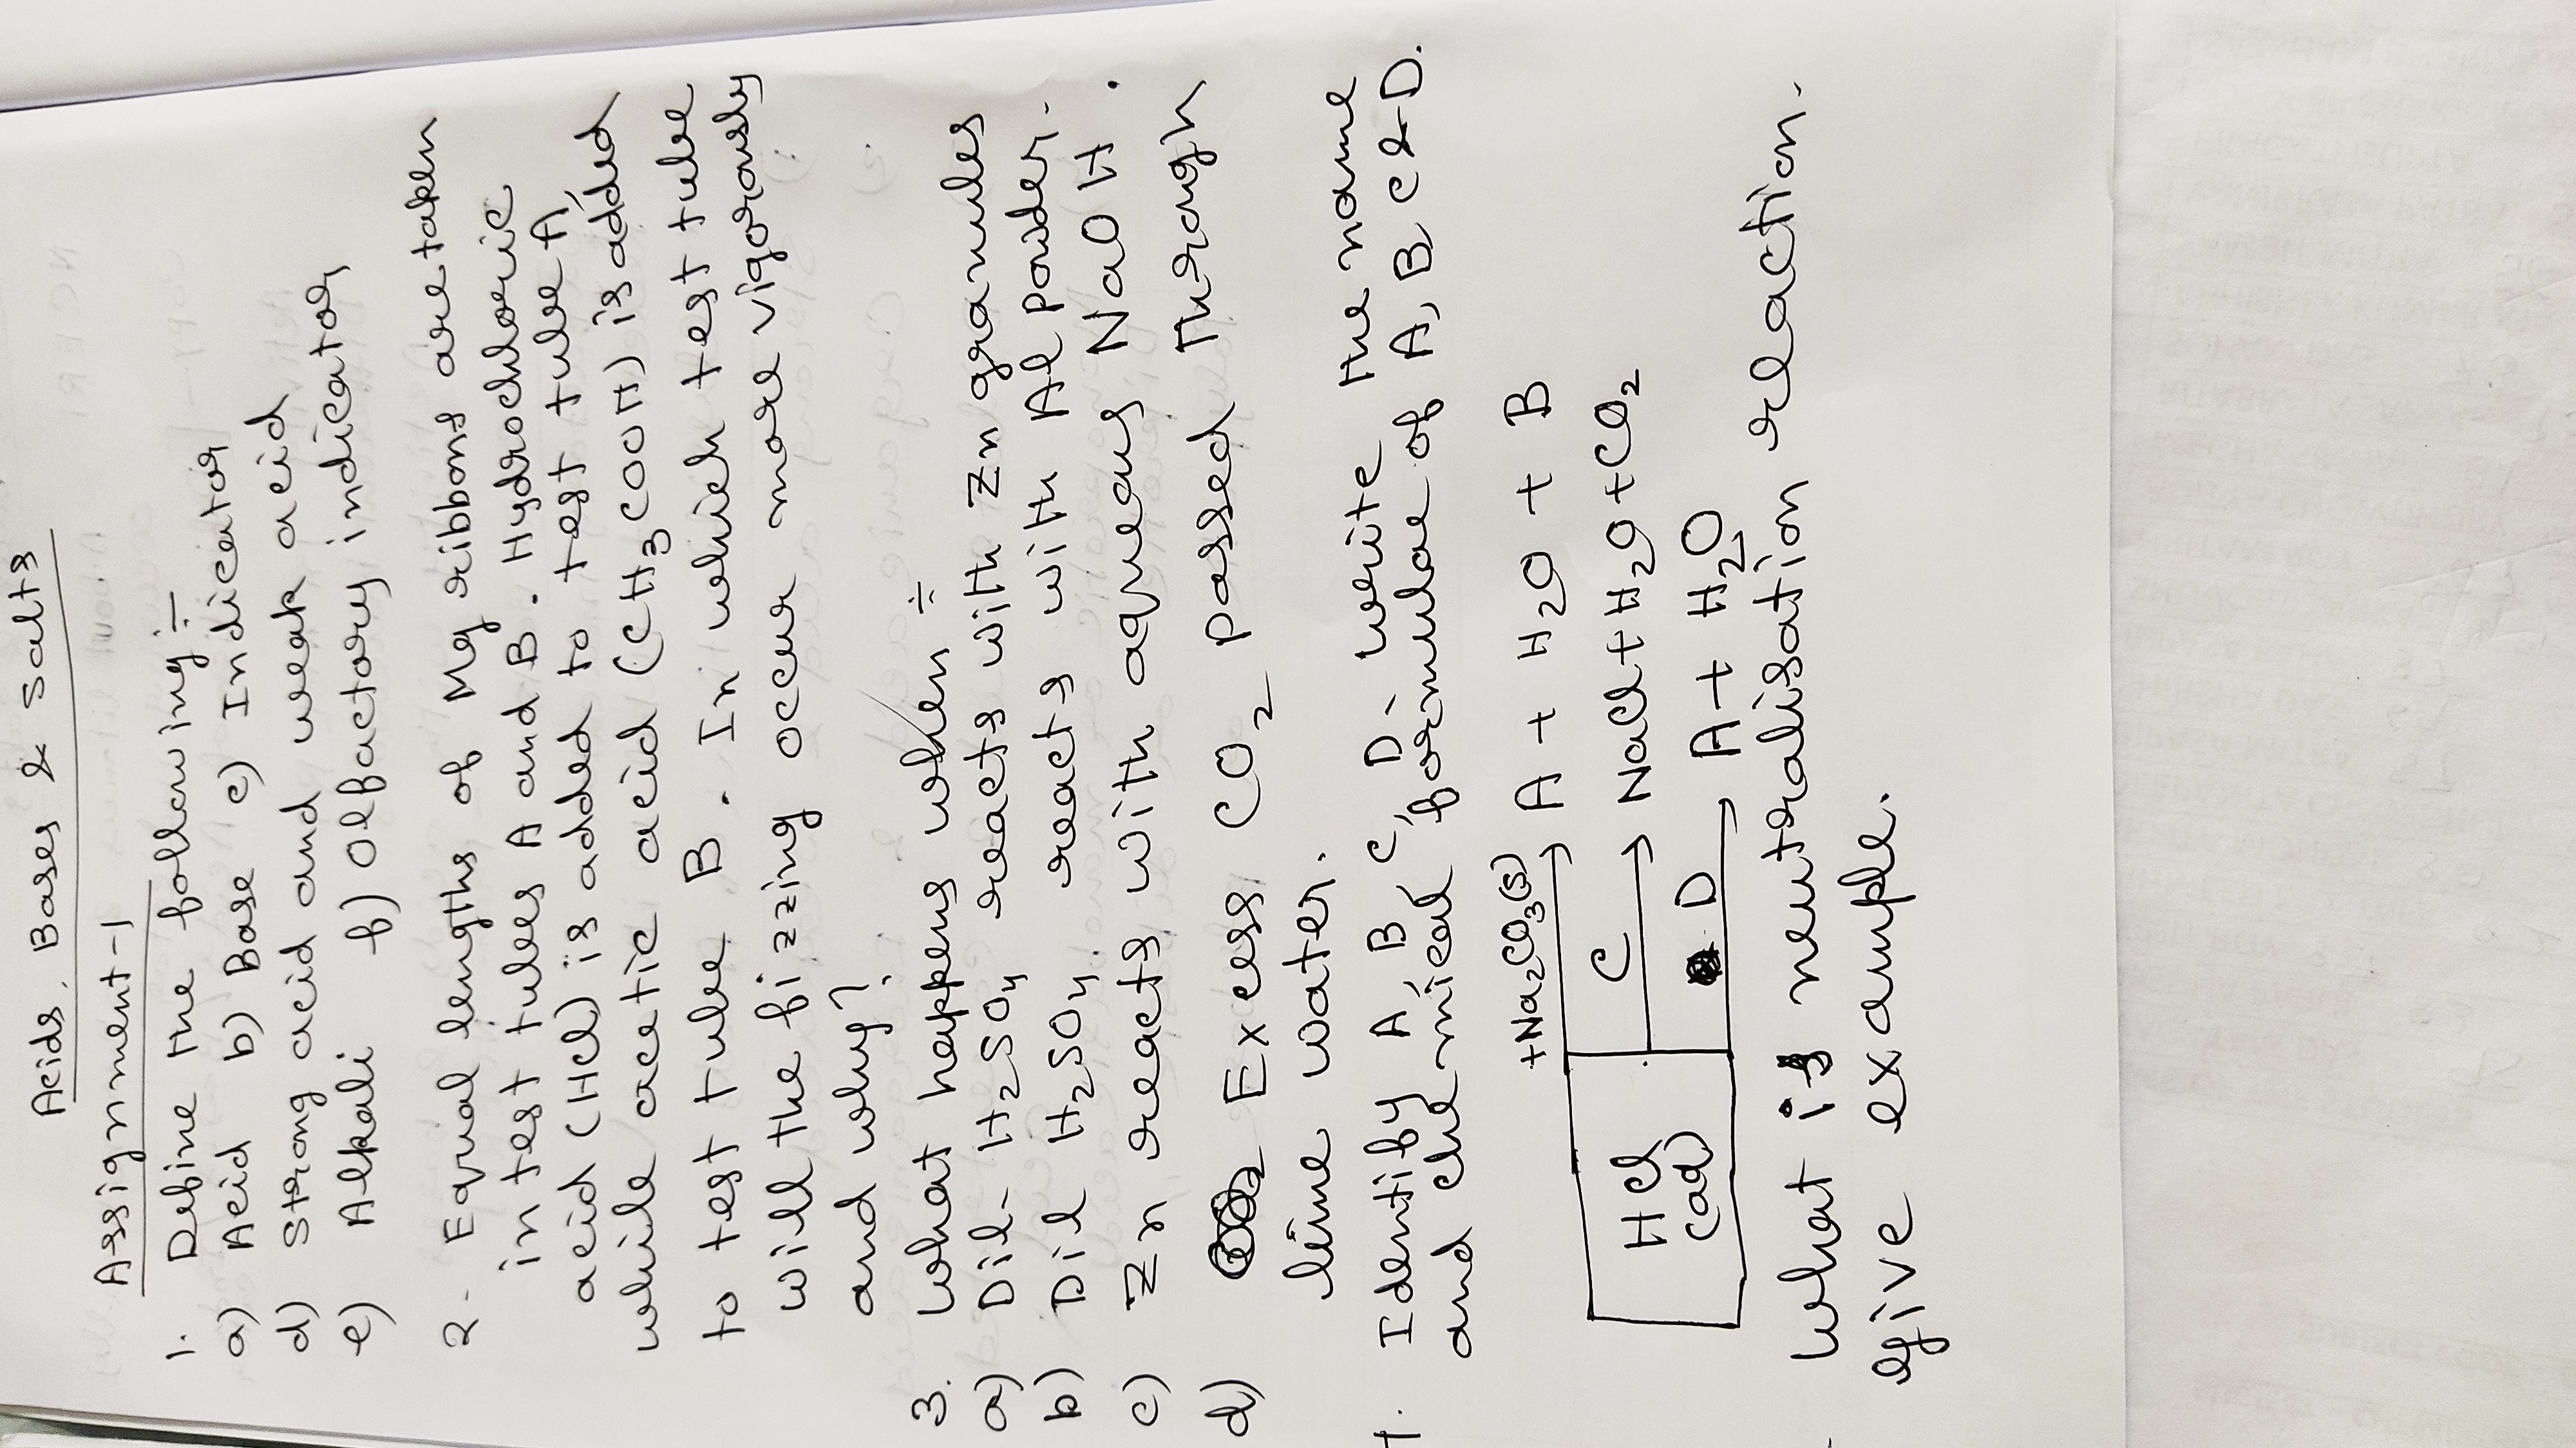 Acids, Bases & Salts
Assignment-1
1. Define the following :-
a) Acid b) Base c) Indicator
d) Strong acid and weak acid
e) Alkali f) Olfactory indicator
2. Equal lengths of Mg ribbons are taken
in test tubes A and B. Hydrochloric
acid (HCl) is added to test tube A,
while acetic acid (CH3COOH) is added
to test tube B. In which test tube
will the fizzing occur more vigorously
and why?
3. What happens when :-
a) Dil- H2SO4 reacts with Zn granules
b) Dil H2SO4 reacts with Al powder.
c) Zn reacts with aqueous NaOH.
d) Excess CO2 passed through
lime water.
Identify A, B, C, D- write the name
and chemical formulae of A, B, C & D.
+Na2CO3(s)
A + H2O + B
HCl
(aq)
C
NaCl + H2O + CO2
D
A + H2O
What is neutralisation reaction.
give example.